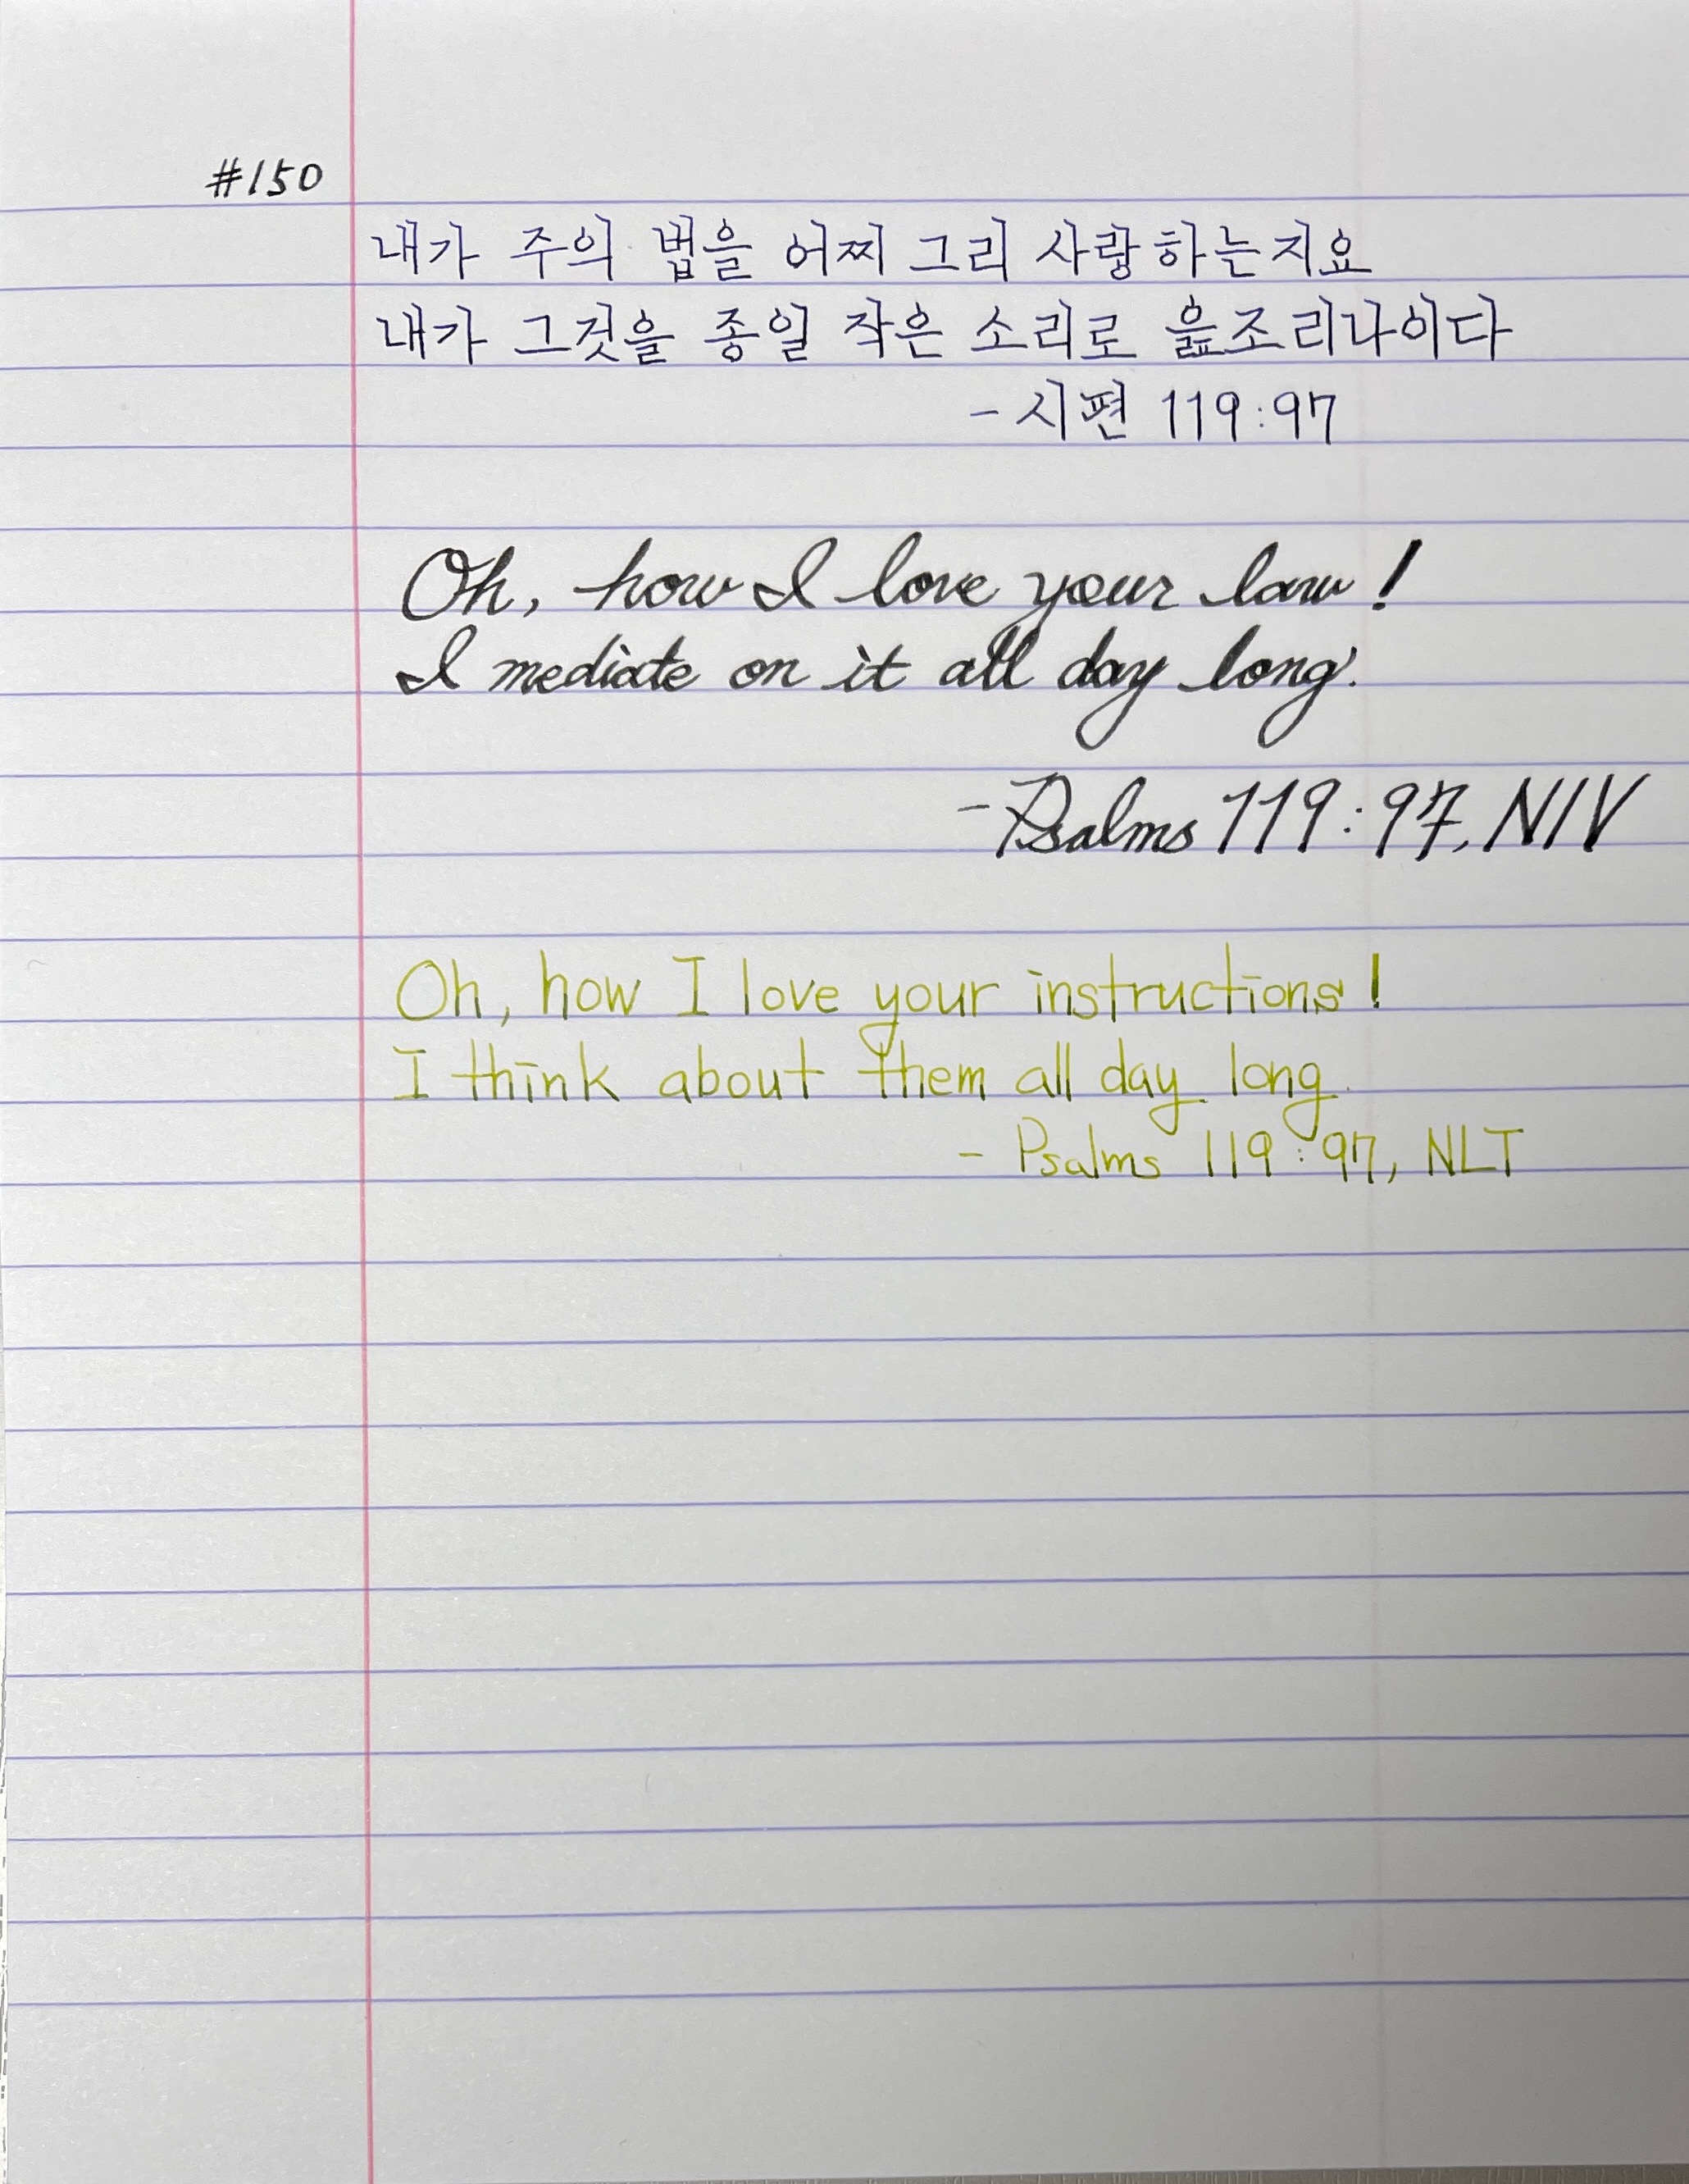 #150
내가 주의 법을 어찌 그리 사랑하는지요
내가 그것을 종일 작은 소리로 읊조리나이다
- 시편 119:97
Oh, how I love your law!
I mediate on it all day long.
- Psalms 119:97, NIV
Oh, how I love your instructions!
I think about them all day long.
- Psalms 119:97, NLT